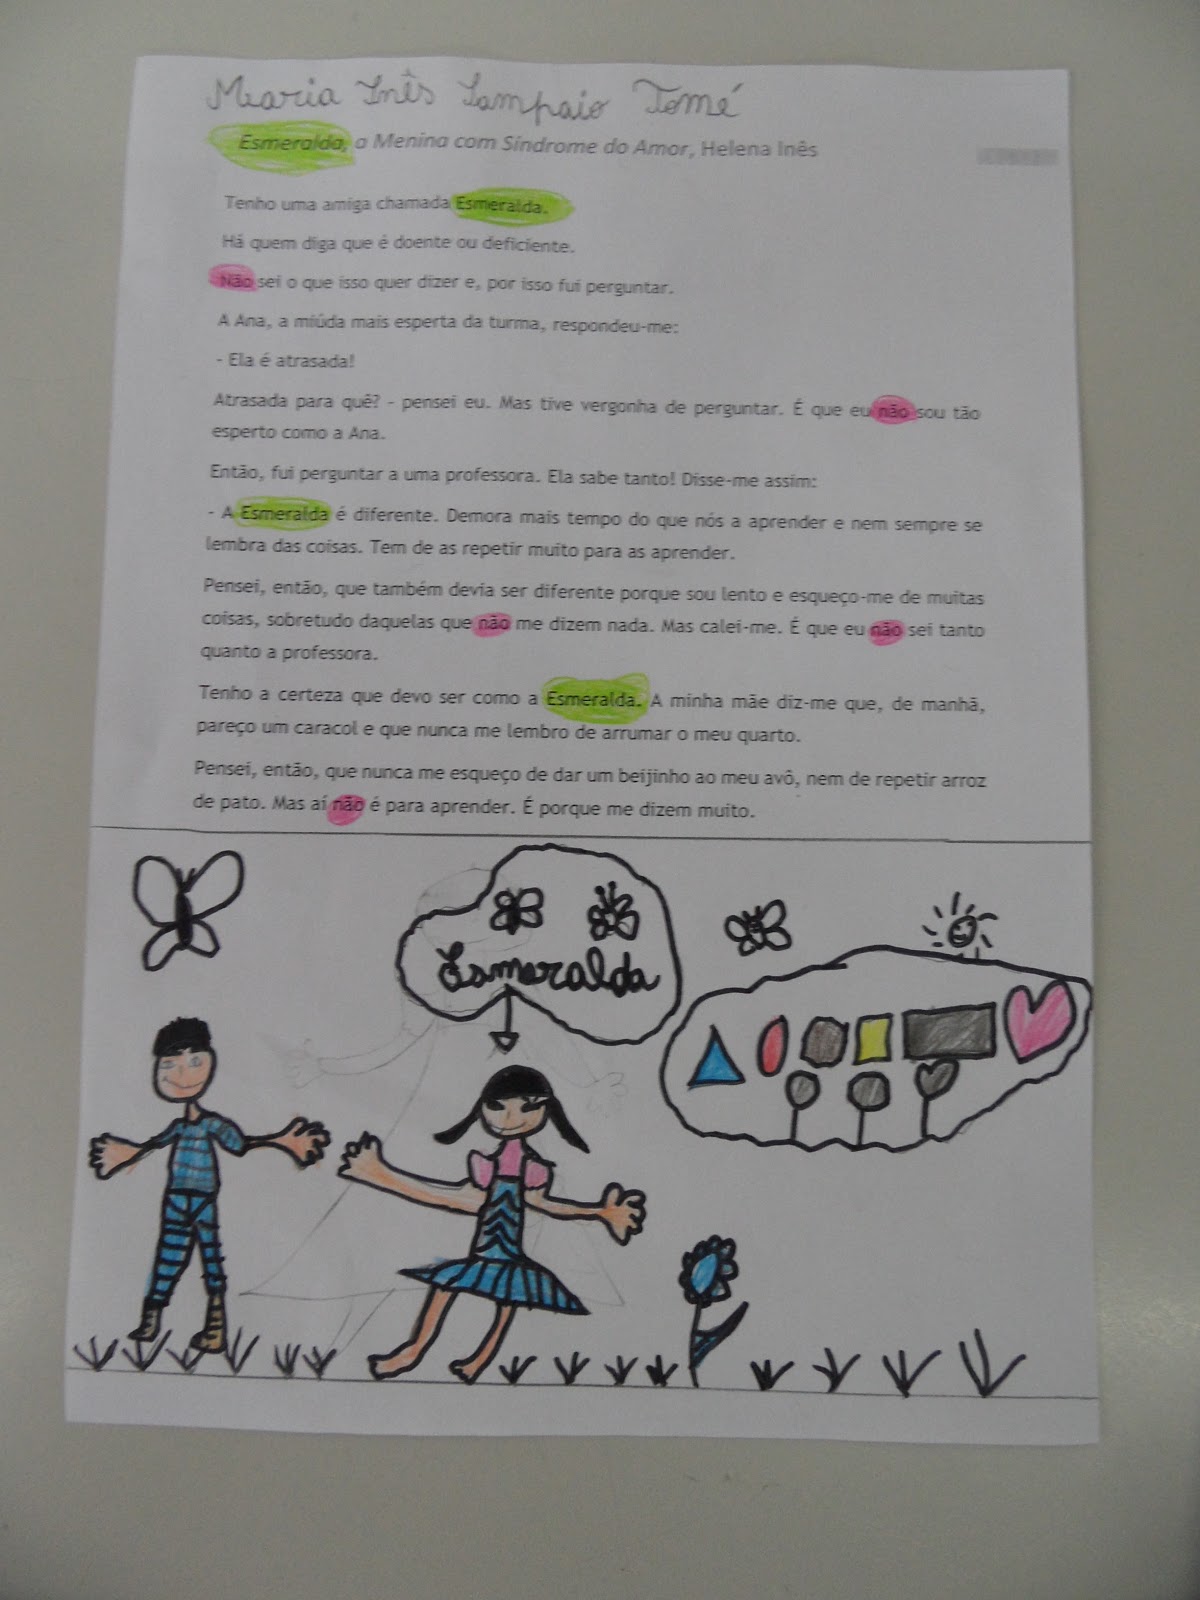 Maria Inês Sampaio Tomé
Esmeralda, a Menina com Síndrome do Amor, Helena Inês
Tenho uma amiga chamada Esmeralda.
Há quem diga que é doente ou deficiente.
Não sei o que isso quer dizer e, por isso fui perguntar.
A Ana, a miúda mais esperta da turma, respondeu-me:
- Ela é atrasada!
Atrasada para quê? - pensei eu. Mas tive vergonha de perguntar. É que eu não sou tão
esperto como a Ana.
Então, fui perguntar a uma professora. Ela sabe tanto! Disse-me assim:
- A Esmeralda é diferente. Demora mais tempo do que nós a aprender e nem sempre se
lembra das coisas. Tem de as repetir muito para as aprender.
Pensei, então, que também devia ser diferente porque sou lento e esqueço-me de muitas
coisas, sobretudo daquelas que não me dizem nada. Mas calei-me. É que eu não sei tanto
quanto a professora.
Tenho a certeza que devo ser como a Esmeralda. A minha mãe diz-me que, de manhã,
pareço um caracol e que nunca me lembro de arrumar o meu quarto.
Pensei, então, que nunca me esqueço de dar um beijinho ao meu avô, nem de repetir arroz
de pato. Mas aí não é para aprender. É porque me dizem muito.
Esmeralda